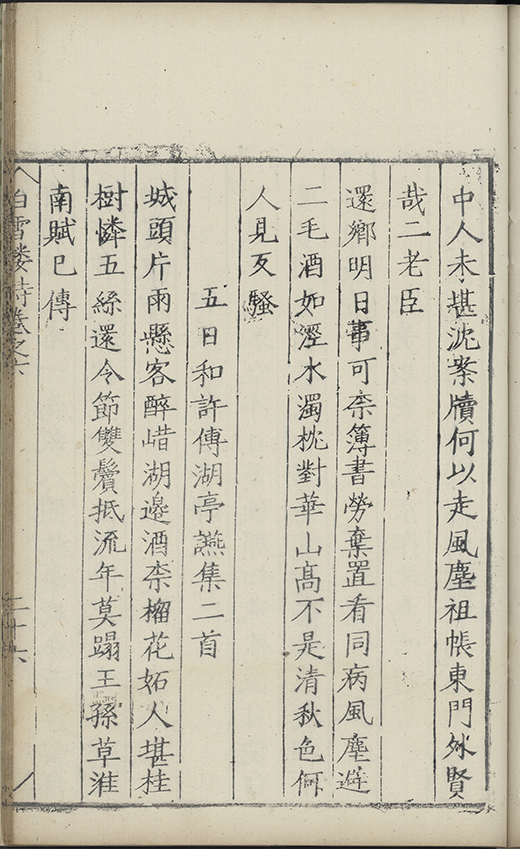 中人未堪沈案牘何以走風塵祖帳東門外賢
哉二老臣
還鄉明日事可柰簿書勞棄置看同病風塵避
二毛酒如涇水濁枕對華山髙不是清秋色何
人見反騷
五日和許傅湖亭讌集二首
城頭片雨懸客醉㟙湖邉酒柰榴花妬人堪桂
樹憐五絲還令節雙鬢抵流年莫蹋王孫草淮
南賦已傳
白雪樓詩卷之六
二十六